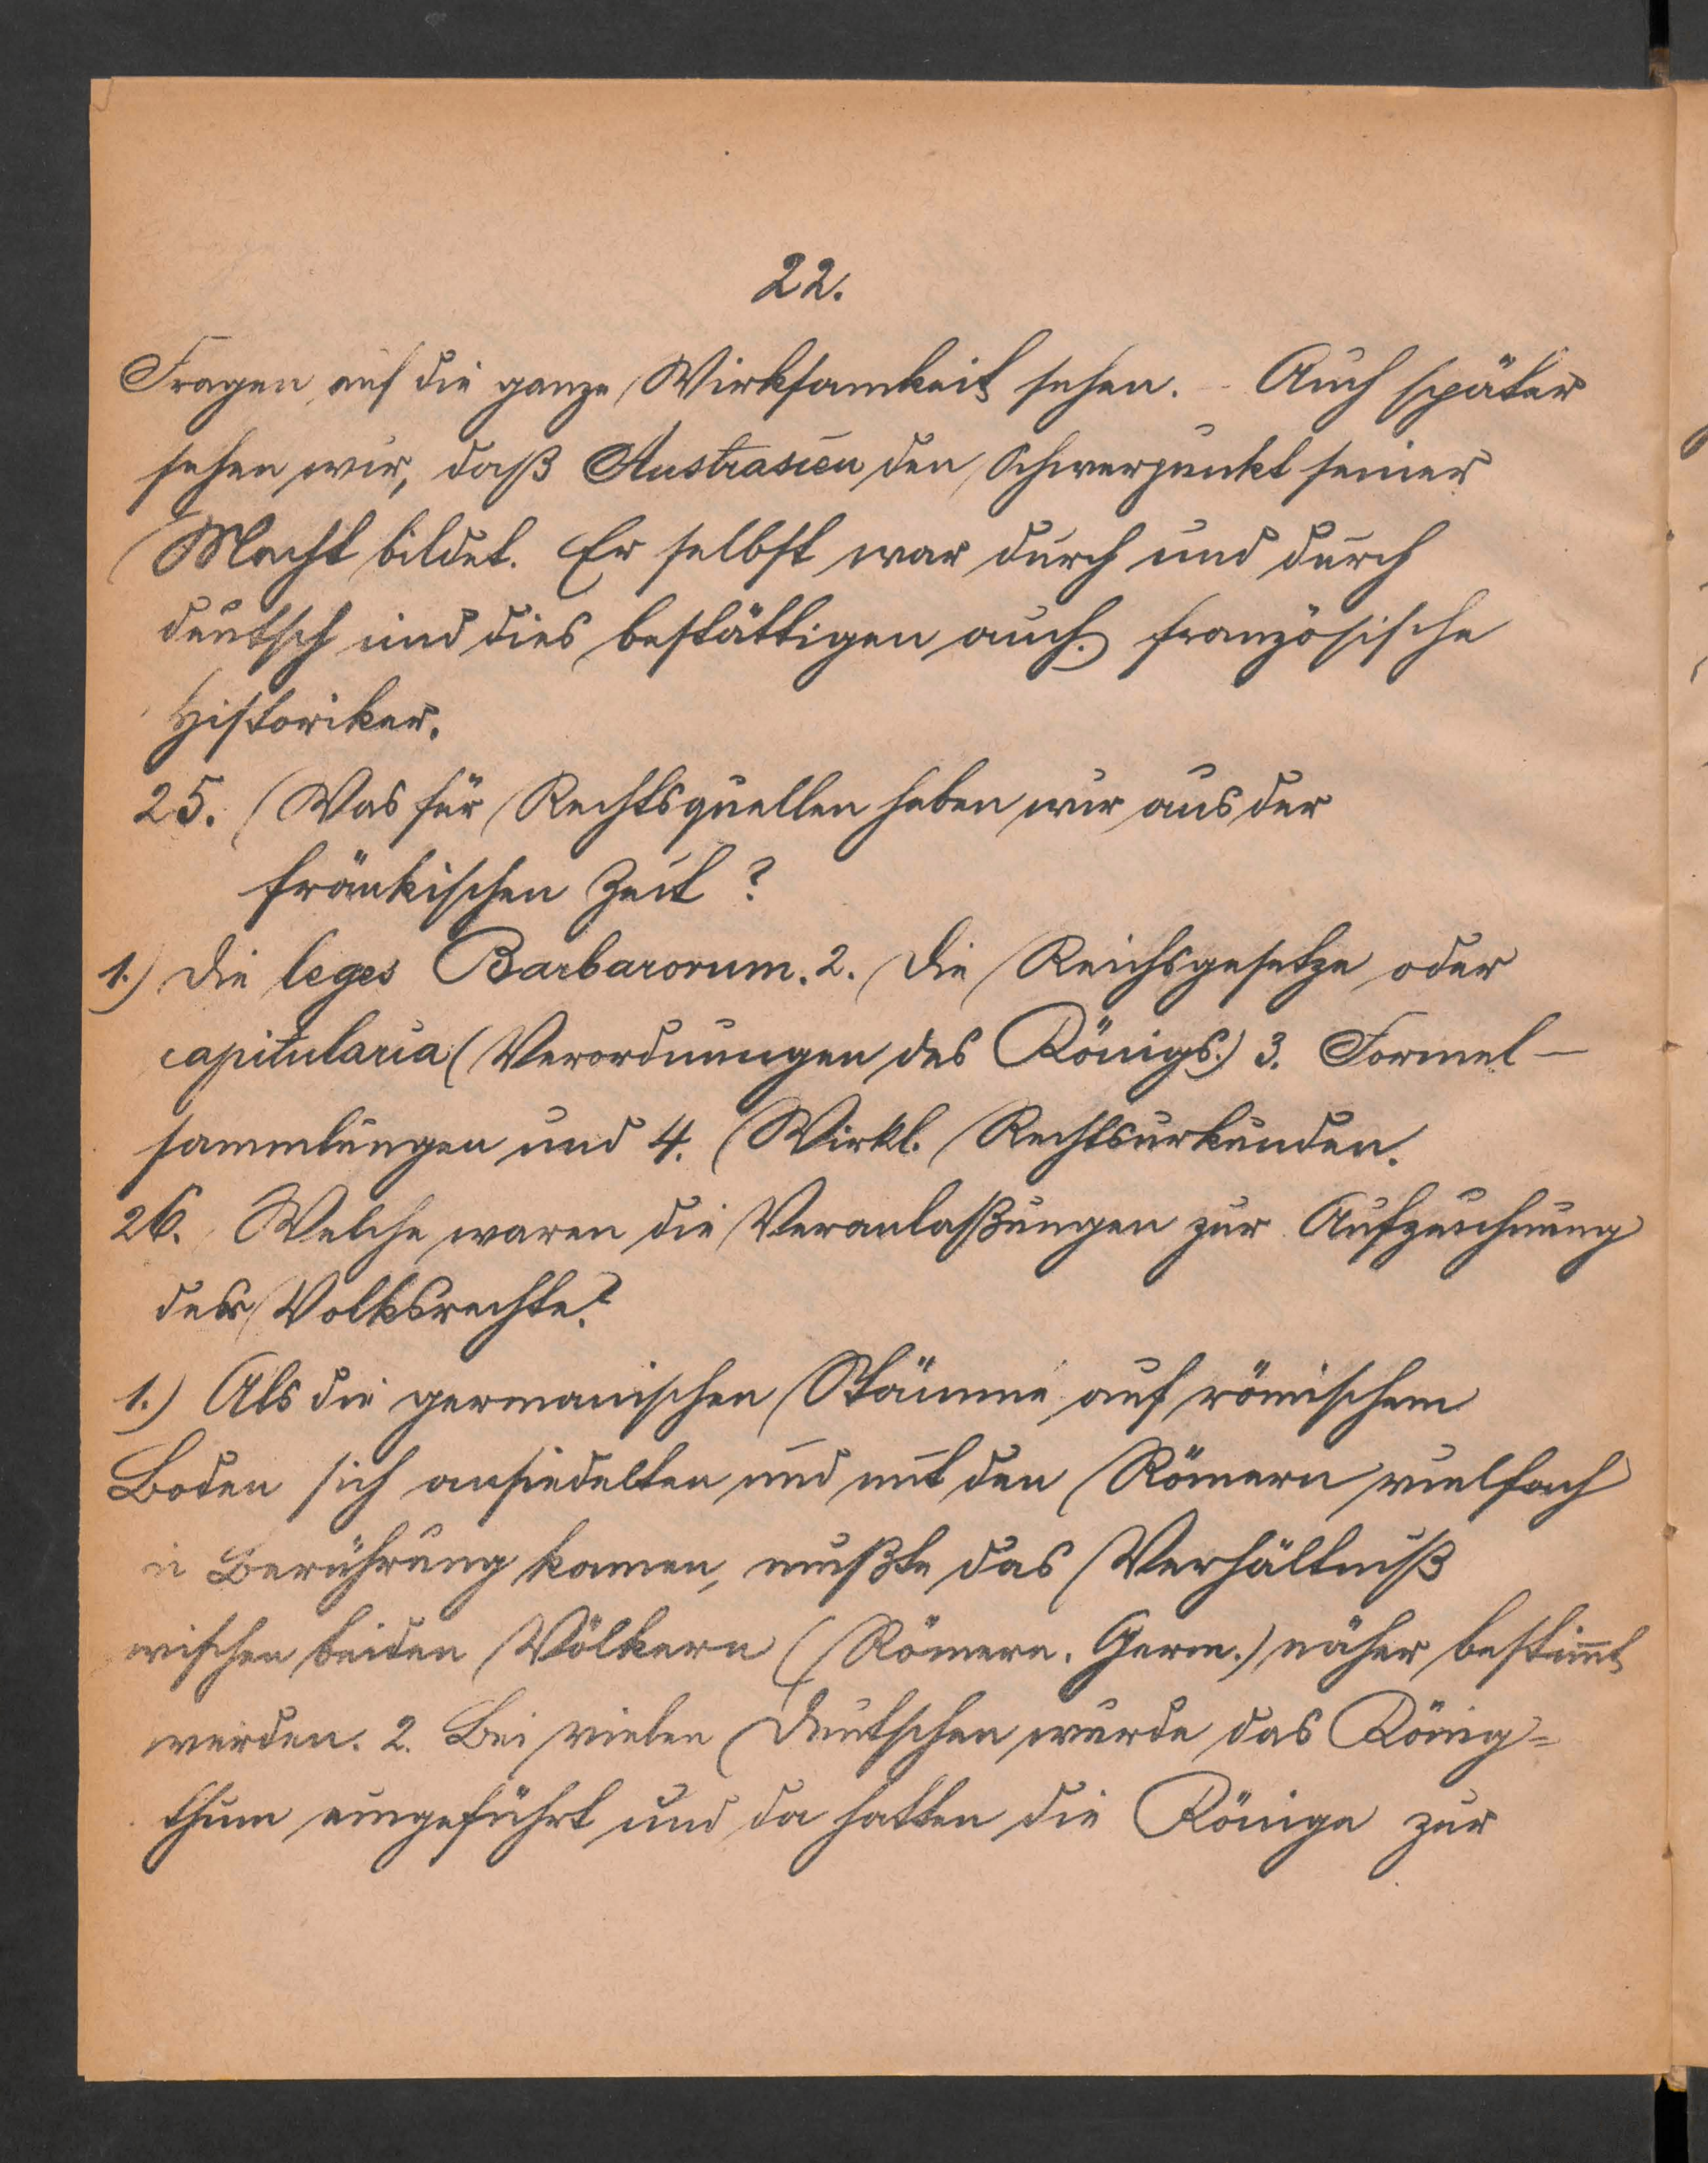 22.
Fragen auf die ganze Wirksamkeit sehen. - Auch später
sehen wir, daß Austrasien den Schwerpunkt seiner
Macht bildet. Er selbst war durch und durch
deutsch und dies bestättigen auch. französische
Historiker.
25. Was für Rechtsquellen haben wir aus der
fränkischen Zeit?
1.) Die leges Barbarorum. 2. Die Reichsgesetze oder
capitularia (Verordnungen des Königs.) 3. Formel-
sammlungen und 4. Wirkl. Rechtsurkunden.
26. Welche waren die Veranlaßungen zur Aufzeichnung
der Volksrechte?
1.) Als die germanischen Stämme auf römischem
Boden sich ansiedelten und mit den Römern vielfach
in Berührung kamen, mußte das Verhältniß
wischen beiden Völkern (Römern. Germ.) näher bestimt
werden. 2. Bei vielen Deutschen wurde das König=
thum eingeführt und da hatten die Könige zur